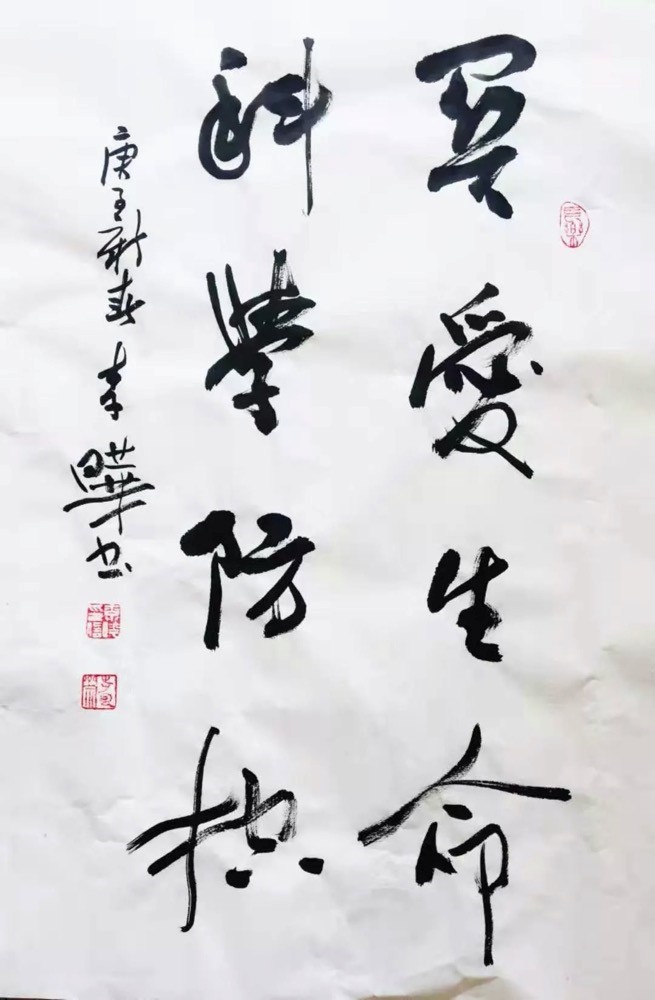 關愛生命
科學防控
庚子新春李曄书